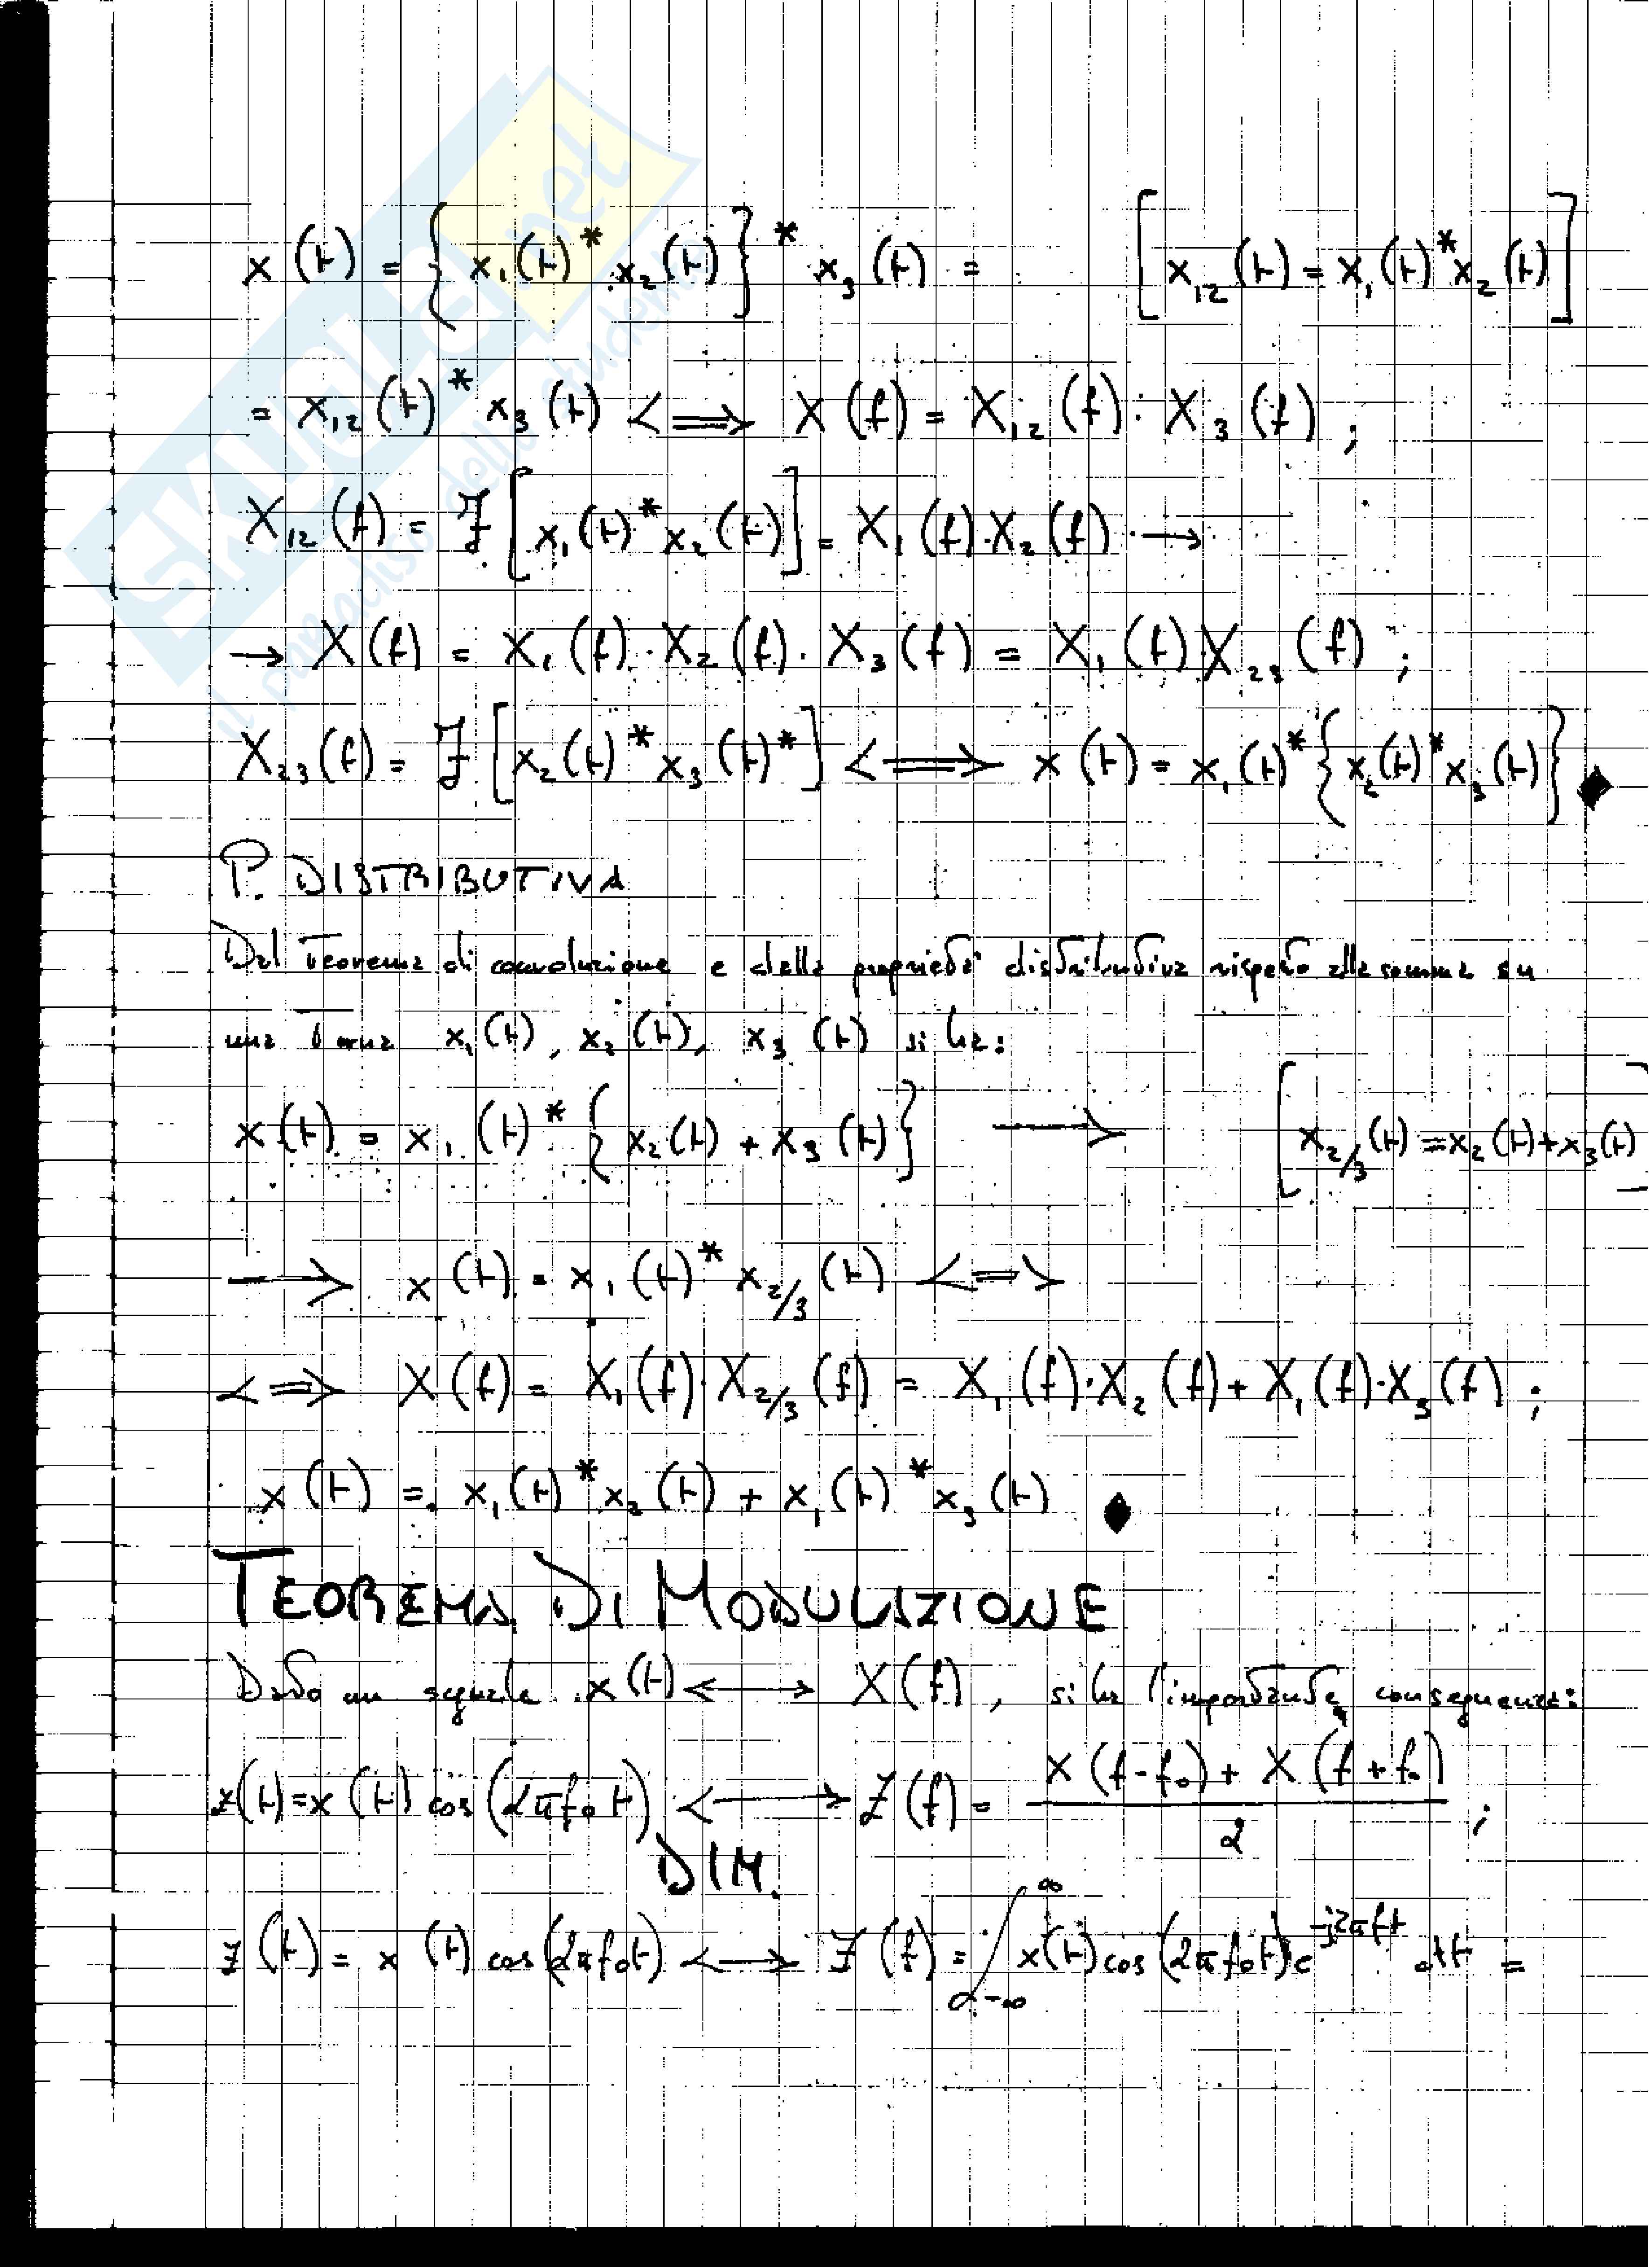 x(t) = {x₁(t)* x₂(t)}* x₃(t) = [x₁₂(t) = x₁(t)* x₂(t)]
= x₁₂(t)* x₃(t) <=> X(f) = X₁₂(f) · X₃(f) ;
X₁₂(f) = ℱ[x₁(t)* x₂(t)] = X₁(f)·X₂(f) →
→ X(f) = X₁(f)·X₂(f)·X₃(f) = X₁(f) X₂₃(f) ;
X₂₃(f) = ℱ[x₂(t)* x₃(t)*] <=> x(t) = x₁(t)* {x₂(t)* x₃(t)} ◆
P. DISTRIBUTIVA
Dal Teorema di convoluzione e dalla proprietà distributiva rispetto alla somma su
una terna x₁(t), x₂(t), x₃(t) si ha:
x(t) = x₁(t)* {x₂(t) + x₃(t)} → [x₂/₃(t) = x₂(t)+x₃(t)]
→ x(t) = x₁(t)* x₂/₃(t) <=>
<=> X(f) = X₁(f)·X₂/₃(f) = X₁(f)·X₂(f) + X₁(f)·X₃(f) ;
x(t) = x₁(t)* x₂(t) + x₁(t)* x₃(t) ◆
TEOREMA DI MODULAZIONE
Dato un segnale x(t) <-> X(f), si ha l'importante conseguenza:
z(t) = x(t) cos(2πf₀t) <-> Z(f) = (X(f-f₀) + X(f+f₀))/2 ;
DIM.
z(t) = x(t) cos(2πf₀t) <-> Z(f) = ∫₋∞^∞ x(t) cos(2πf₀t) e^(-j2πft) dt =
SKUOLA.net
il paradiso dello studente